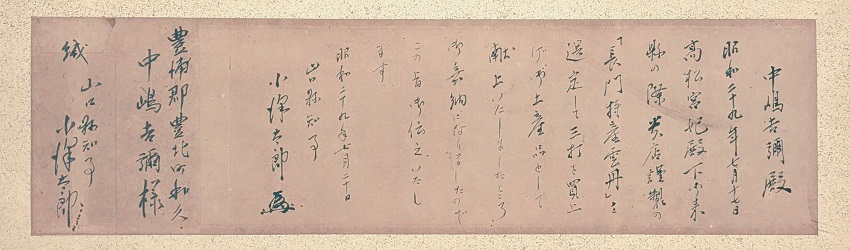 中嶋吉彌殿
昭和二十九年七月十七日
高松宮妃殿下御来
縣の際貴店謹製の
「長門特産雲丹」を
選定して三打を買上
げ御土産品として
献上いたしましたところ
御嘉納になりましたので
この旨御伝えいたし
ます
昭和二十九年七月二十日
山口縣知事
小澤太郎
豊浦郡豊北町和久
中嶋吉彌様
緘
山口縣知事
小澤太郎